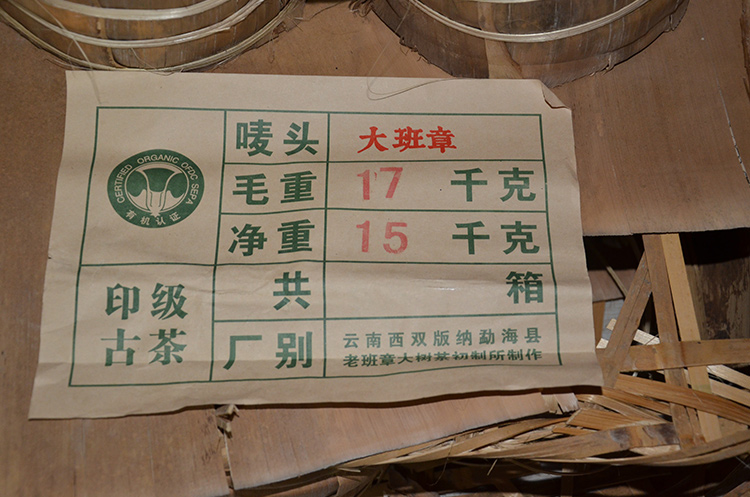 CERTIFIED ORGANIC OFDC SEPA
有机认证
印级
古茶
唛头 大班章
毛重 17 千克
净重 15 千克
共 箱
厂别 云南西双版纳勐海县
老班章大树茶初制所制作